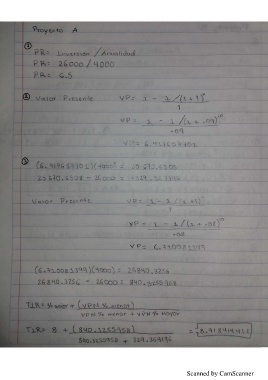 Proyecto A
①
PR= Inversión / Anualidad
PR= 26000 / 4000
PR= 6.5
② Valor Presente VP= 1 - 1/(1+i)ⁿ
i
VP= 1 - 1/(1+.09)¹⁰
.09
VP= 6.417657701
③ (6.417657701)(4000) = 25 670.6308
25 670.6308 - 26000 = -329.369196
Valor Presente VP= 1 - 1/(1+i)ⁿ
VP= 1 - 1/(1+.08)¹⁰
.08
VP= 6.710081399
(6.710081399)(4000) = 26840.3256
26840.3256 - 26000 = 840.3255958
TIR= % menor + (VPN % menor)
VPN % menor + VPN % mayor
TIR= 8 + (840.3255958)
840.3255958 + 329.369196
Scanned by CamScanner